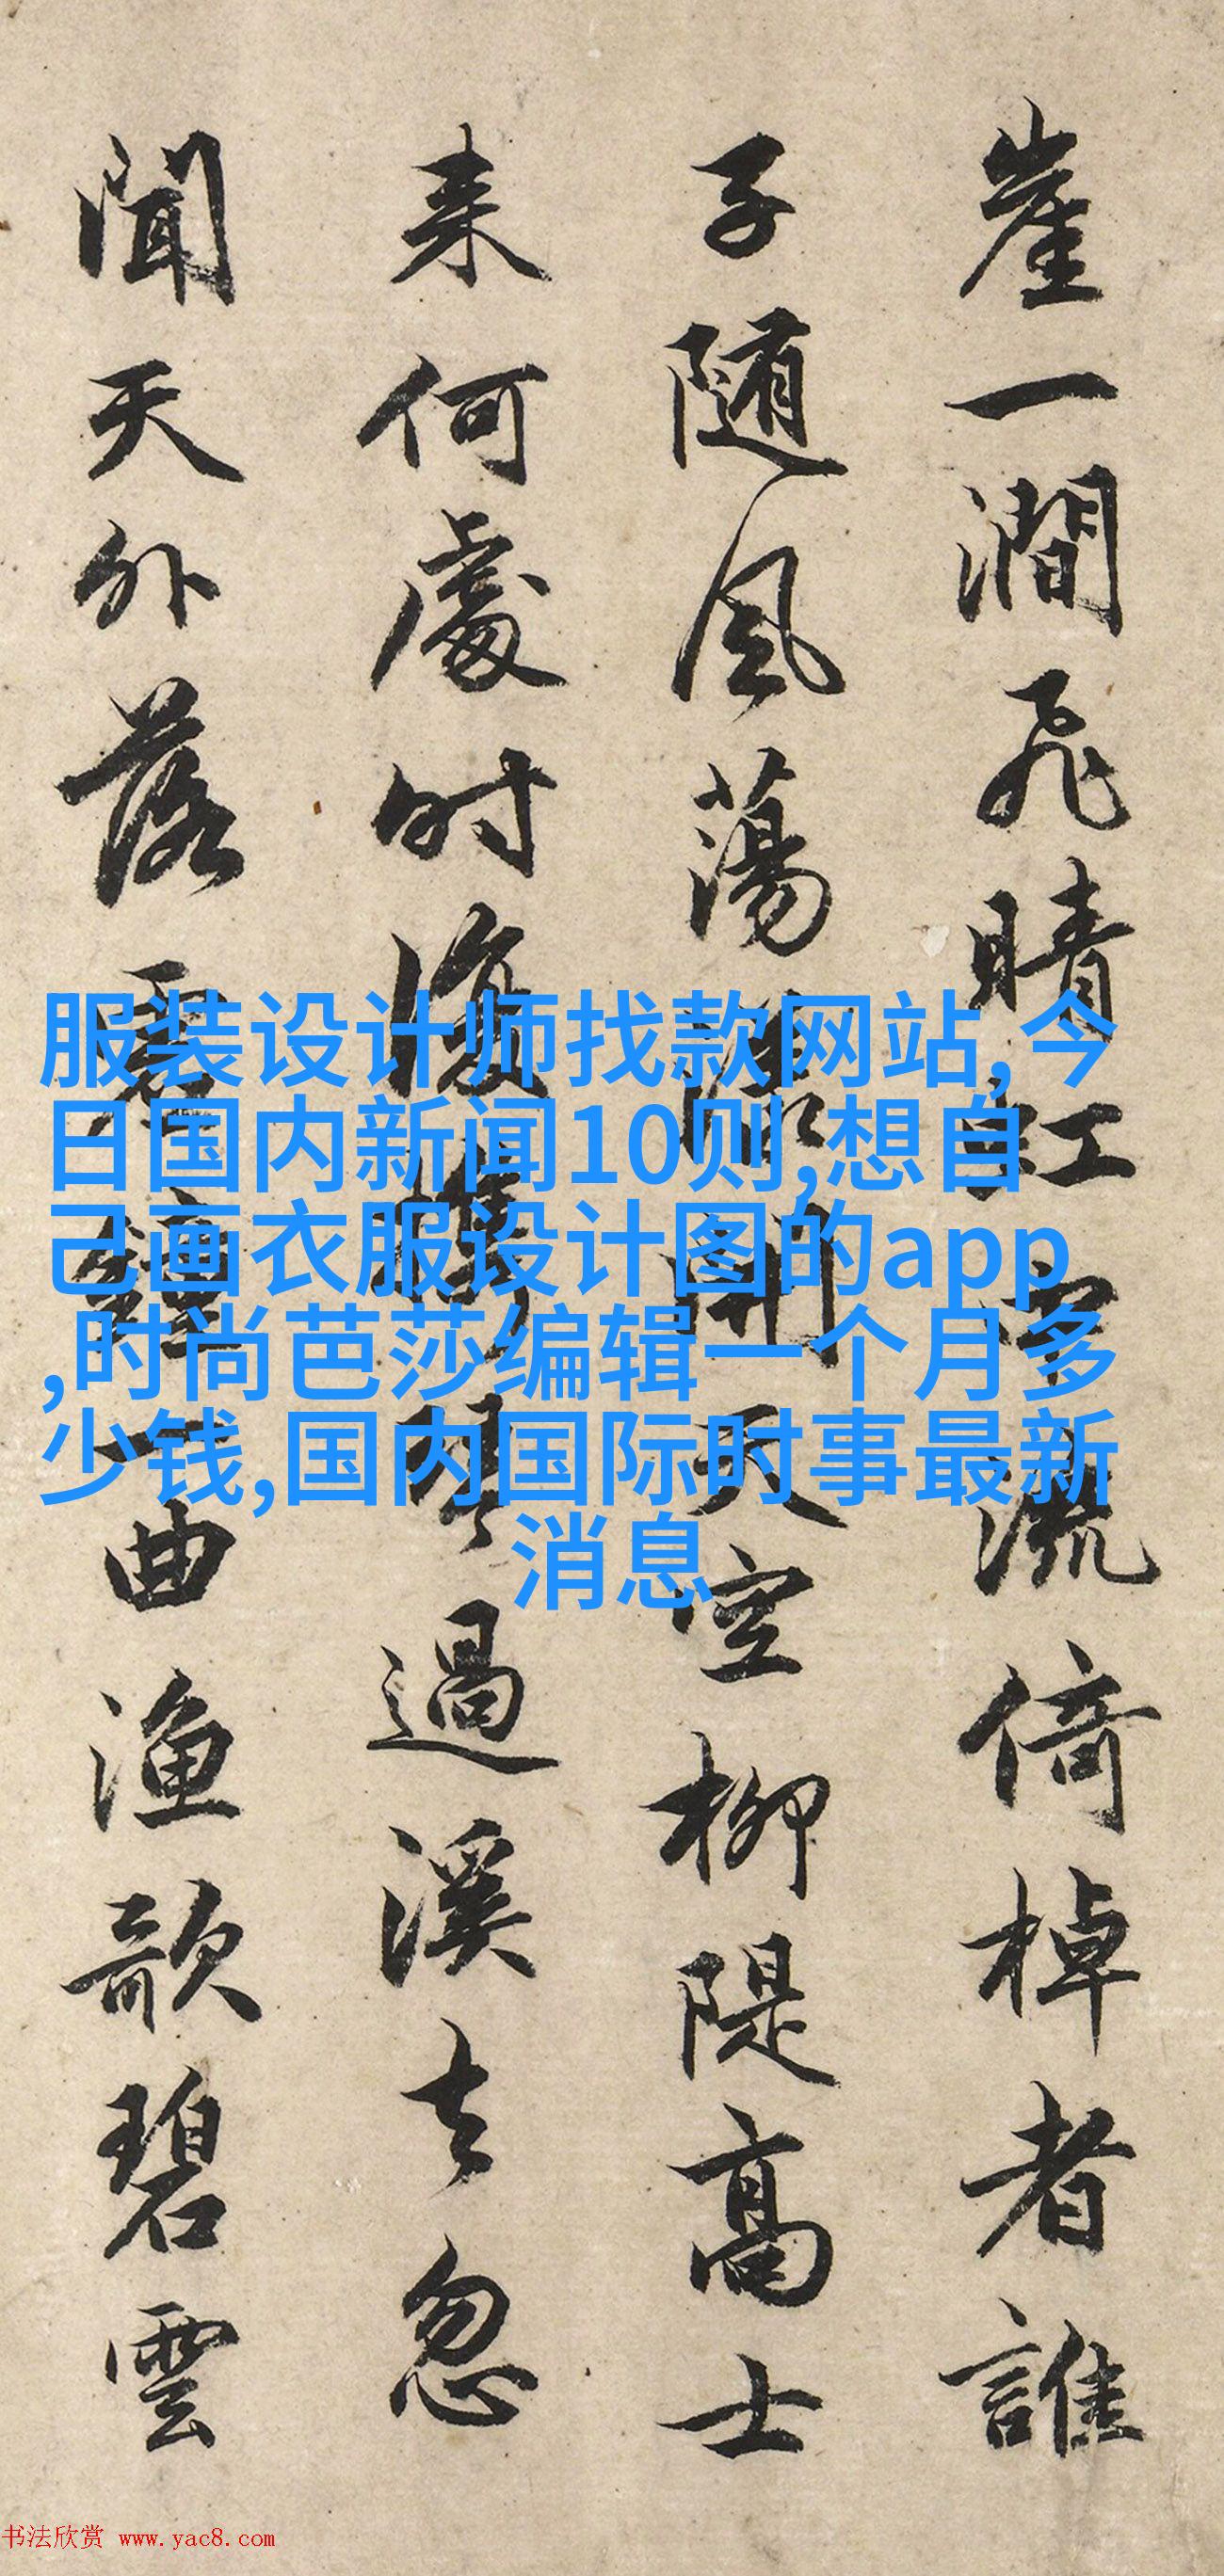 崖一澗飛晴虹中流倚棹者誰
子随風蕩開天空柳隄高士
来何處时復携琴過溪去忽
聞天外落鐘一曲漁歌碧雲
服装设计师找款网站,今
日国内新闻10则,想自
己画衣服设计图的app
,时尚芭莎编辑一个月多
少钱,国内国际时事最新
消息
书法欣赏 www.yac8.com